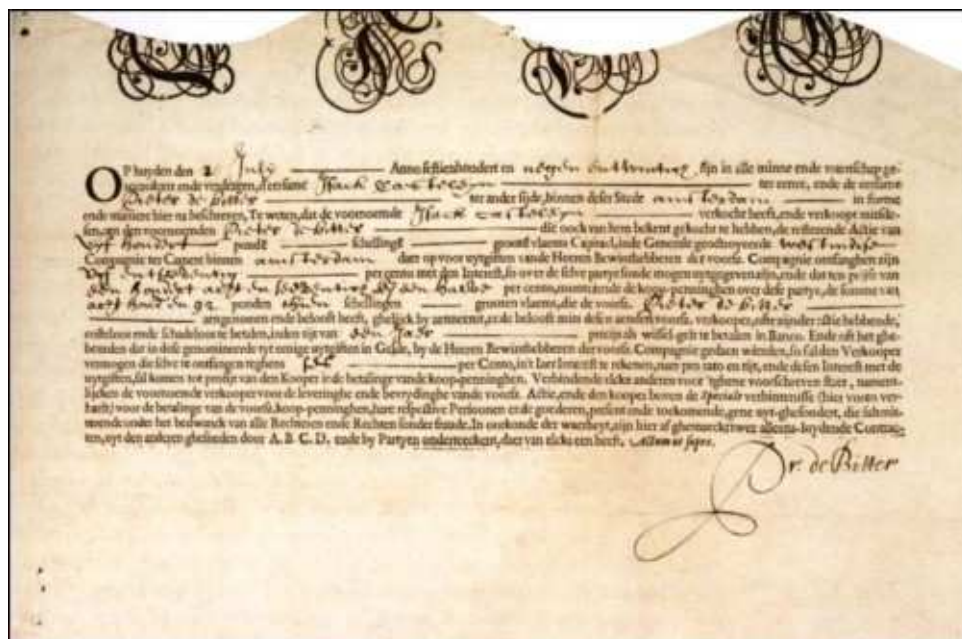 OP huyden den 2 July Anno sestienhondert en negen entwintig, sijn in alle minne ende vrientschap ge-
ende verdragen, d'eersame Isack Casteleyn ter eenre, ende de eersame
Pieter de Bitter ter ander sijde, binnen deser Stede amsterdam in forme
ende maniere hier na beschreven, Te weten, dat de voornoemde Isack Casteleyn verkocht heeft, ende verkoopt mits de-
sen, aen den voornoemden Pieter de Bitter die oock van hem bekent gekocht te hebben, de resterende Actie van
vijf hondert ponde schellingē groote vlaems Capitael, inde Generale geoctroyeerde westindise
Compagnie ter Camere binnen amsterdam daer op voor uytgiften vande Heeren Bewinthebberen der voorsz. Compagnie ontfanghen zijn
vijf entseventig per cento met den Interest, so over de selve partye sonde mogen uytgegeven zijn, ende dat ten prijse van
een hondert acht en seventig en een halve per cento, monterende de koop-penninghen over dese partye, de somme van
acht hondert en 92 ponden thien schellingen grooten vlaems, die de voorsz. Pieter de Bitter
aengenomen ende belooft heeft, ghelijck hy aenneemt, ende belooft mits desen aenden voorsz. verkooper, ofte zijnder actie hebbende,
costeloos ende schadeloos te betalen, inden tijt van een Jaer precijs als wissel-gelt te betalen in Banco. Ende oft ghe-
beurden dat in dese genomineerde tyt eenige uytgiften in Gelde, by de Heeren Bewinthebberen der voorsz. Compagnie gedaen wierden, so sal den Verkooper
vermogen die selve te ontfangen teghens per Cento, in't Jaer Interest te rekenen, naer pro rato en tijt, ende desen Interest met de
uytgiften, sal komen tot profijt van den Kooper in de betalinge vande koop-penninghen. Verbindende elcke anderen voor 'tghene voorschreven staet, nament-
lijcken de voornoemde verkooper voor de leveringhe ende bevrydinghe vande voorsz. Actie, ende den kooper boven de speciale verbintenisse (hier voren ver-
haelt) voor de betalinge van de voorsz. koop-penninghen, hare respective Persoonen ende goederen, present ende toekomende, gene uyt-ghesondert, die submit-
teerende onder het bedwanck van alle Rechten ende Rechten sonder fraude. In oorkonde der waerheyt, zijn hier af ghemaeckt twee alleens-luydende Contrac-
ten, uyt den anderen ghesneden door A. B. C. D. ende by Partyen onderteeckent, daer van elck een heeft. Actum ut supra.
Pr. de Bitter